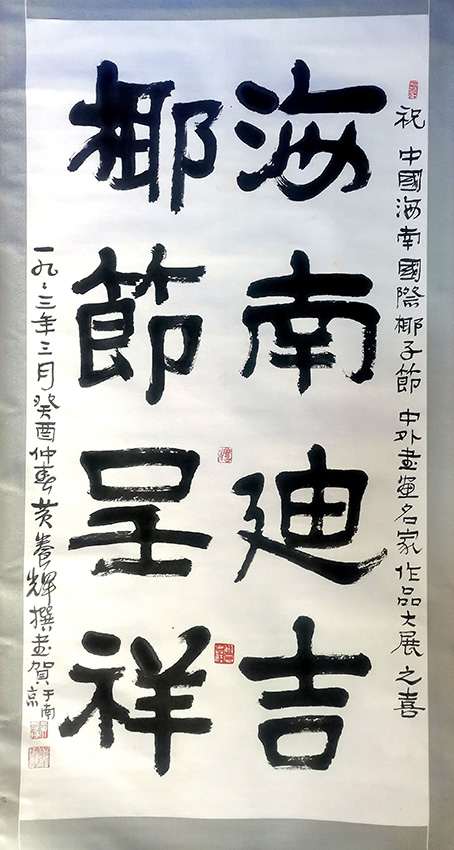 祝 中國海南國際椰子節 中外書畫名家作品大展之喜
海南迪吉
椰節呈祥
一九九三年三月癸酉仲春黄養輝撰書賀於南京